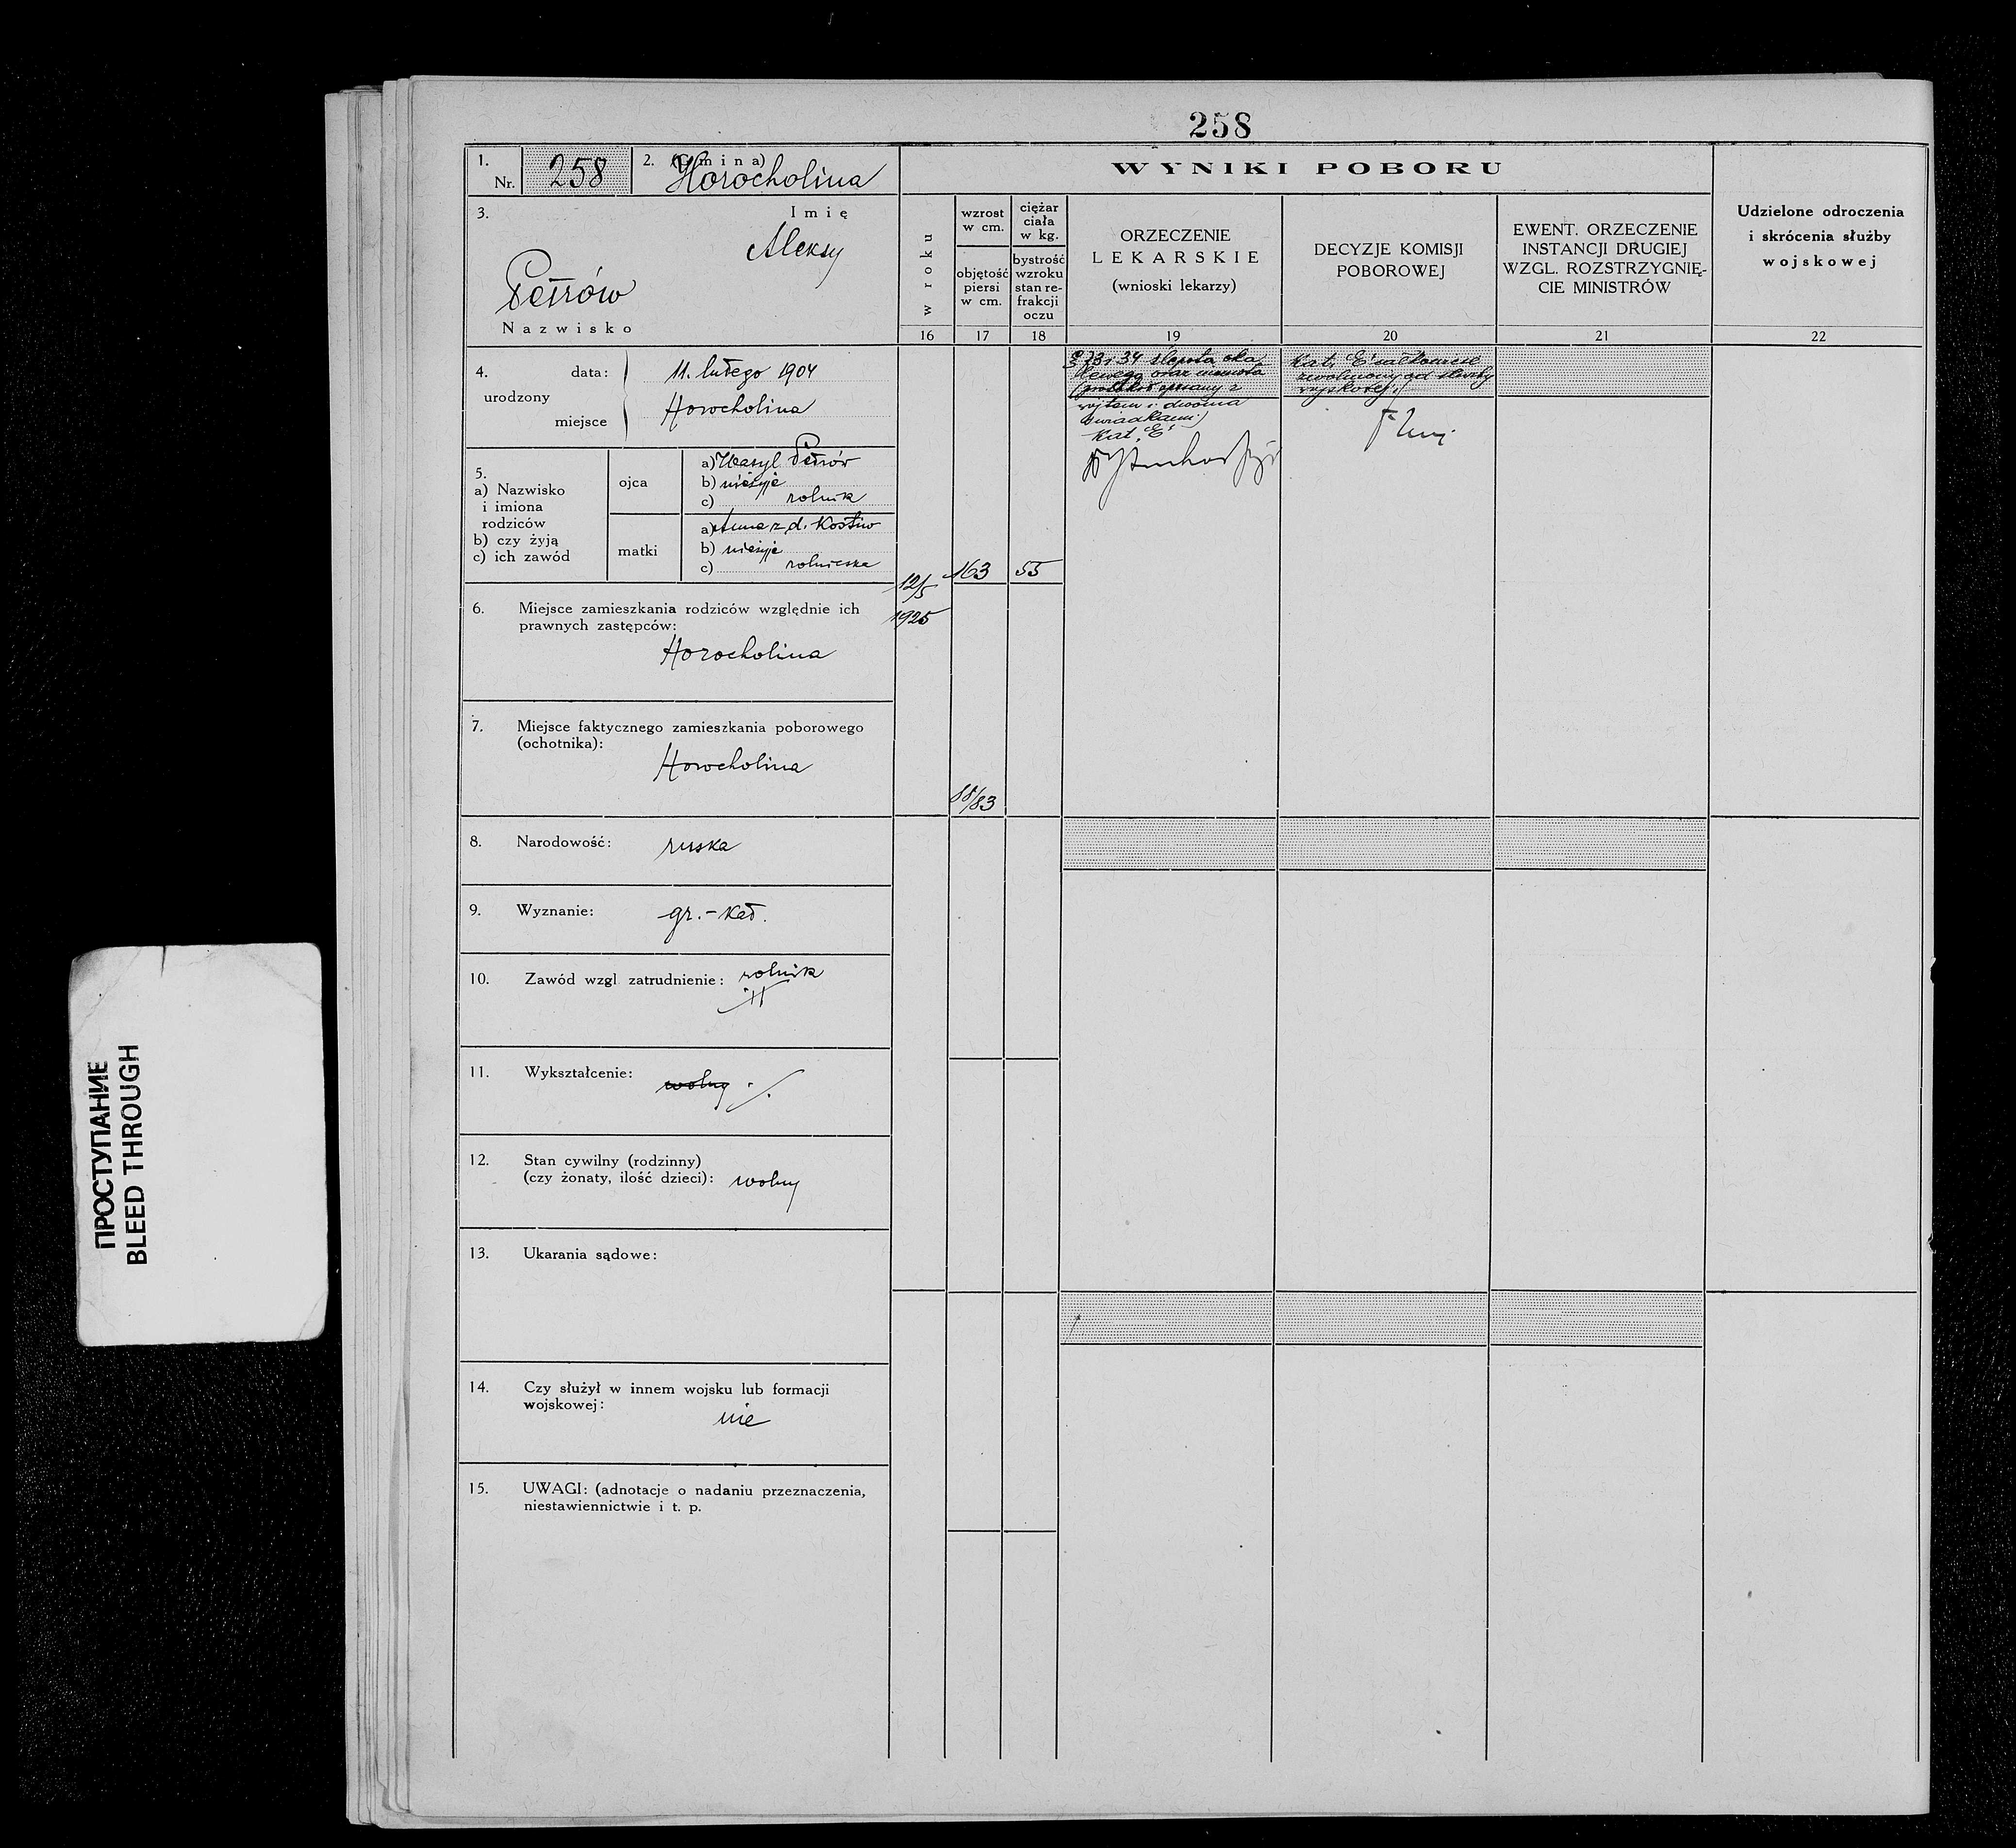 258
1.
Nr. 258
2. (Gmina)
Horocholina
3.
Imię
Aleksy
Petrów
Nazwisko
WYNIKI POBORU
w roku
wzrost
w cm.
objętość
piersi
w cm.
ciężar
ciała
w kg.
bystrość
wzroku
stan re-
frakcji
oczu
ORZECZENIE
LEKARSKIE
(wnioski lekarzy)
DECYZJE KOMISJI
POBOROWEJ
EWENT. ORZECZENIE
INSTANCJI DRUGIEJ
WZGL. ROZSTRZYGNIĘ-
CIE MINISTRÓW
Udzielone odroczenia
i skrócenia służby
wojskowej
16 17 18 19 20 21 22
4.
urodzony
data: 11. lutego 1904
miejsce Horocholina
5.
a) Nazwisko
i imiona
rodziców
b) czy żyją
c) ich zawód
ojca
a) Wasyl Petrów
b) nieżyje
c) rolnik
matki
a) Anna z d. Kostiw
b) nieżyje
c) rolniczka
6. Miejsce zamieszkania rodziców względnie ich
prawnych zastępców:
Horocholina
7. Miejsce faktycznego zamieszkania poborowego
(ochotnika):
Horocholina
8. Narodowość: ruska
9. Wyznanie: gr.-kat.
10. Zawód wzgl. zatrudnienie: rolnik
11. Wykształcenie: wolny
12. Stan cywilny (rodzinny)
(czy żonaty, ilość dzieci): wolny
13. Ukarania sądowe:
14. Czy służył w innem wojsku lub formacji
wojskowej:
nie
15. UWAGI: (adnotacje o nadaniu przeznaczenia,
niestawiennictwie i t. p.
12/5
1925
163
55
/83
34 ślepota oka
lewego oraz niemota
(protokół spisany z
wójtem i dwoma
świadkami)
Kat. "E"
Kat. "E"
zwolniony od służby
wojskowej.
ПРОСТУПАНИЕ
BLEED THROUGH